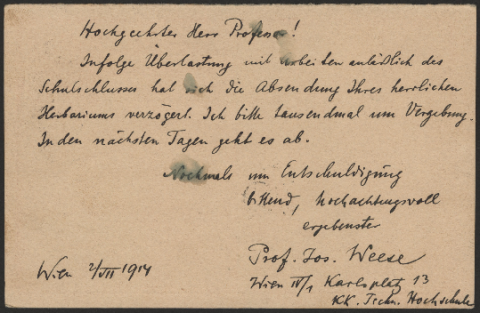 Hochgeehrter Herr Professor!
Infolge Überlastung mit Arbeiten anläßlich des
Schulschlusses hat sich die Absendung Ihres herrlichen
Herbariums verzögert. Ich bitte tausendmal um Vergebung.
In den nächsten Tagen geht es ab.
Nochmals um Entschuldigung
bittend, hochachtungsvoll
ergebenster
Prof. Jos. Weese
Wien 2/VII 1914
Wien IV/1 Karlsplatz 13
KK. Techn. Hochschule